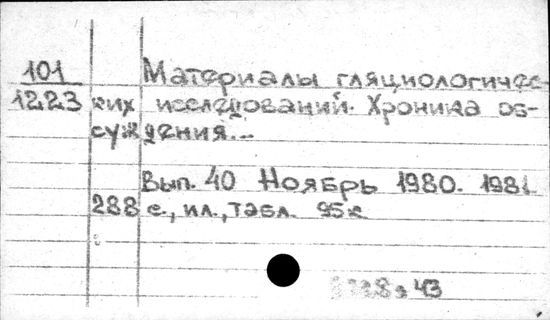 101 Материалы гляциологичес-
1223 ких исследований. Хроника об-
суждения...
Вып. 40 Ноябрь 1980. 1981.
288 с., ил., табл. 95к
43